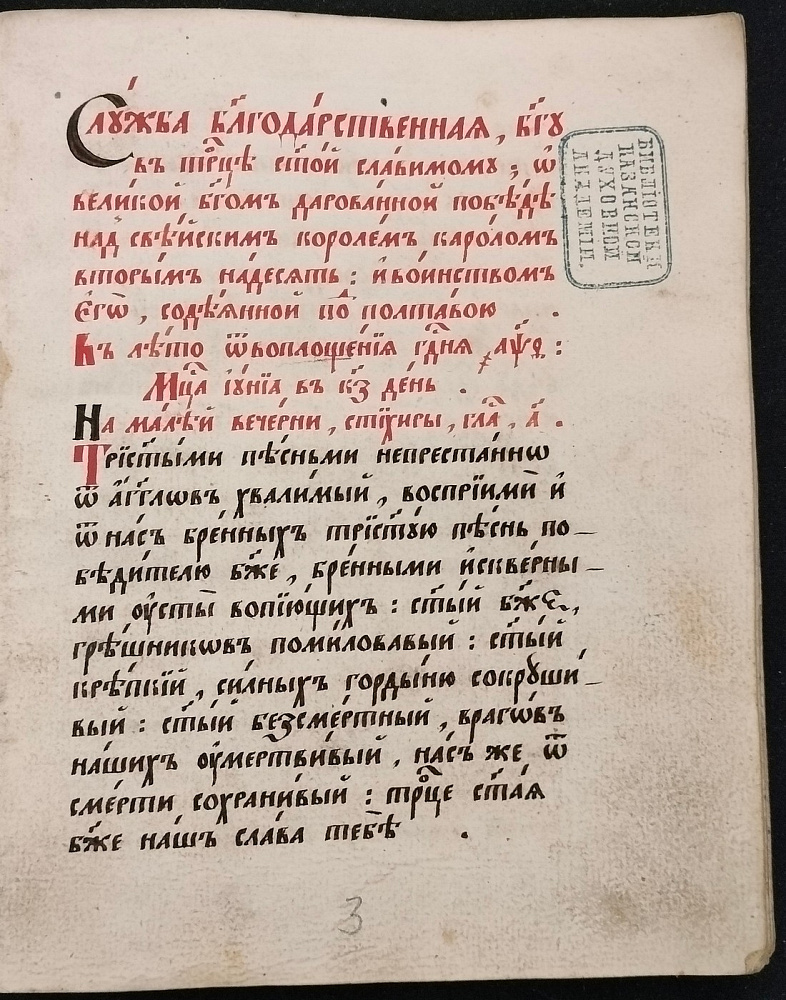 Слꙋ́жба бл҃года́рственная, бг҃ꙋ
въ трⷪ҇цѣ ст҃о́й сла́вимомꙋ; ѡ҆
вели́кой бг҃омъ дарова́нной побѣ́дѣ
над̾ свѣ́йскимъ короле́мъ каро́ломъ
вторы́мъ на́десять: и҆ во́инствомъ
є҆гѡ̀, содѣ́янной под̾ полта́вою.
Въ лѣ́то ѿ воплоще́нїя гдⷭ҇ня ҂аѱѳ:
Мцⷭ҇а ї҆ꙋ́нїа въ к҃з де́нь.
На ма́лѣй вече́рни, стїхи́ры, гла́съ, а҃.
Трїст҃ы́ми пѣ́сньми непреста́ннѡ
ѿ а҆́гг҃лѡвъ хвали́мый, воспрїимѝ и҆
ѿ на́съ бре́нныхъ трїст҃ꙋ́ю пѣ́снь по-
бѣди́телю бж҃е, бре́нными и҆ скве́рны-
ми оу҆сты̀ вопїю́щихъ: ст҃ы́й бж҃е,
грѣ́шникѡвъ поми́ловавый: ст҃ы́й
крѣ́пкїй, си́лныхъ горды́ню сокрꙋши́-
вый: ст҃ы́й безсме́ртный, врагѡ́въ
на́шихъ оу҆мертви́вый, на́съ же ѿ
сме́рти сохрани́вый: трⷪ҇це ст҃а́я
бж҃е на́шъ сла́ва тебѣ̀.
БИБЛІОТЕКИ
КАЗАНСКОЙ
ДУХОВНОЙ
АКАДЕМІИ.
3